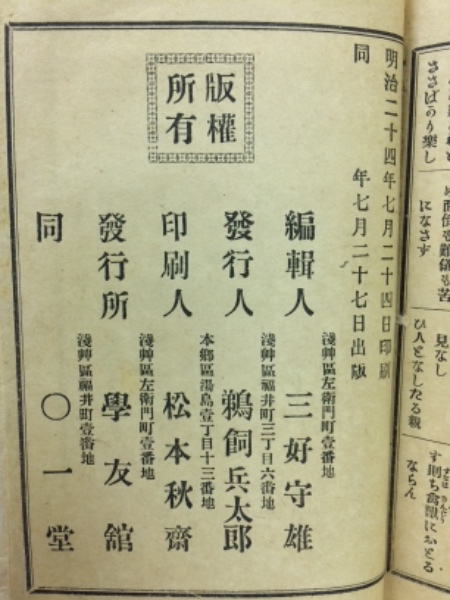 ささばかり樂し
になさず
見なし
ひ人となしたる報
す則ち禽獸におとる
ならん
明治二十四年七月二十四日印刷
同年七月二十七日出版
版權
所有
淺艸區左衞門町壹番地
編輯人 三好守雄
淺艸區福井町三丁目六番地
發行人 鵜飼兵太郎
本鄕區湯島壹丁目十三番地
印刷人 松本秋齋
淺艸區左衞門町壹番地
發行所 學友舘
淺艸區福井町壹番地
同 〇一堂